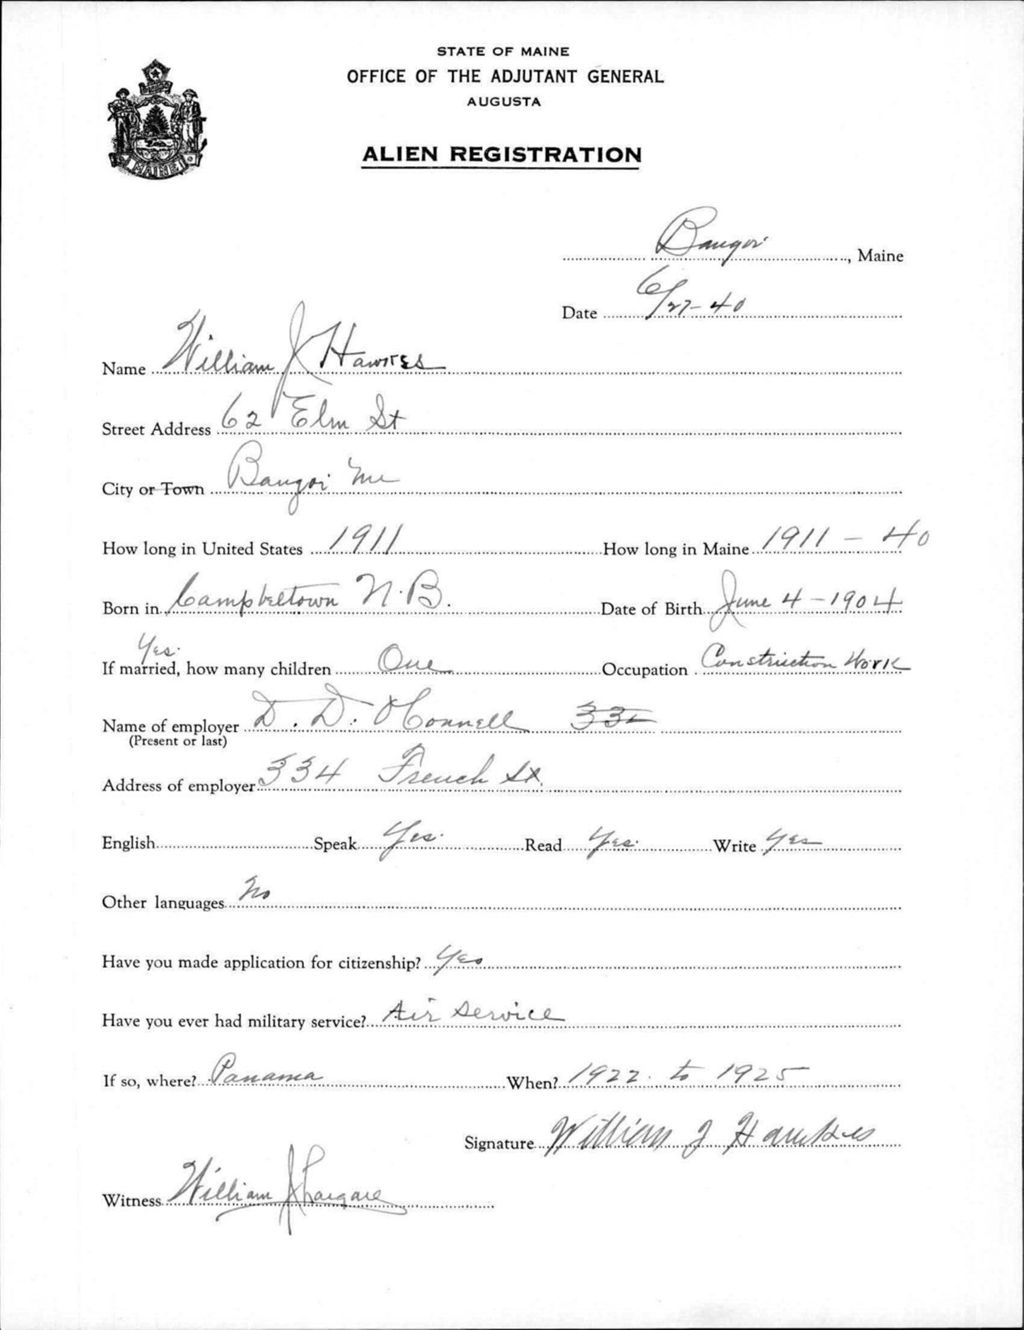 STATE OF MAINE
OFFICE OF THE ADJUTANT GENERAL
AUGUSTA
ALIEN REGISTRATION
MAINE
Bangor, Maine
Date 6/27-40
Name William J Hawkes
Street Address 62 Elm St
City or Town Bangor Me
How long in United States 1911 How long in Maine 1911 - 40
Born in Campbeltown N.B. Date of Birth June 4 - 1904
Yes.
If married, how many children One Occupation Construction Work
Name of employer D. D. O'Connell 332
(Present or last)
Address of employer 334 French St.
English Speak Yes. Read Yes. Write Yes
Other languages No
Have you made application for citizenship? Yes
Have you ever had military service? Air Service
If so, where? Panama When? 1922. to 1925
Signature William J Hawkes
Witness William J